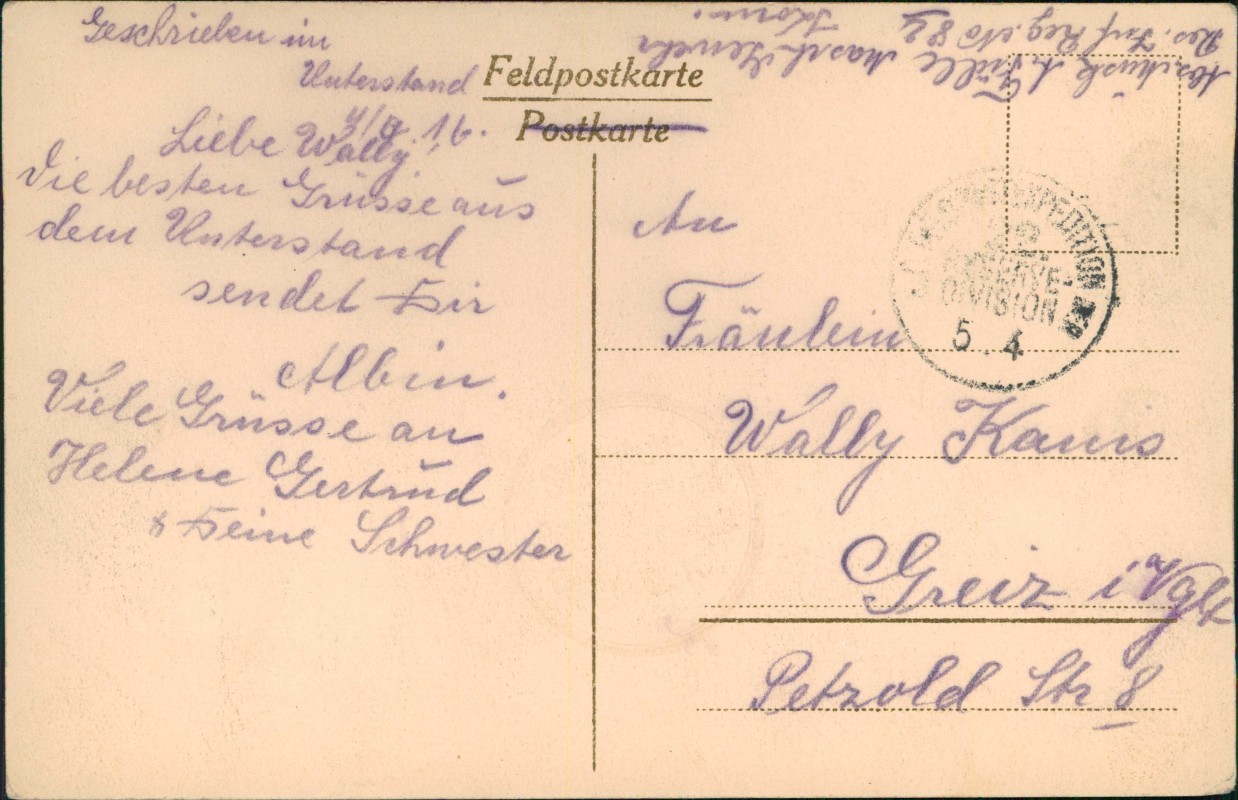 Geschrieben im
Unterstand
4/4. 16.
Liebe Wally,
Die besten Grüsse aus
dem Unterstand
sendet Dir
Albin.
Viele Grüsse an
Helene Gertrud
& Deine Schwester
Feldpostkarte
Postkarte
Res. Inf Reg. No
Masch. Gewehr
Komp.
EXPEDITION
DIVISION
5. 4
An
Fräulein
Wally Kanis
Greiz i Vgtl
Petzold Str 8